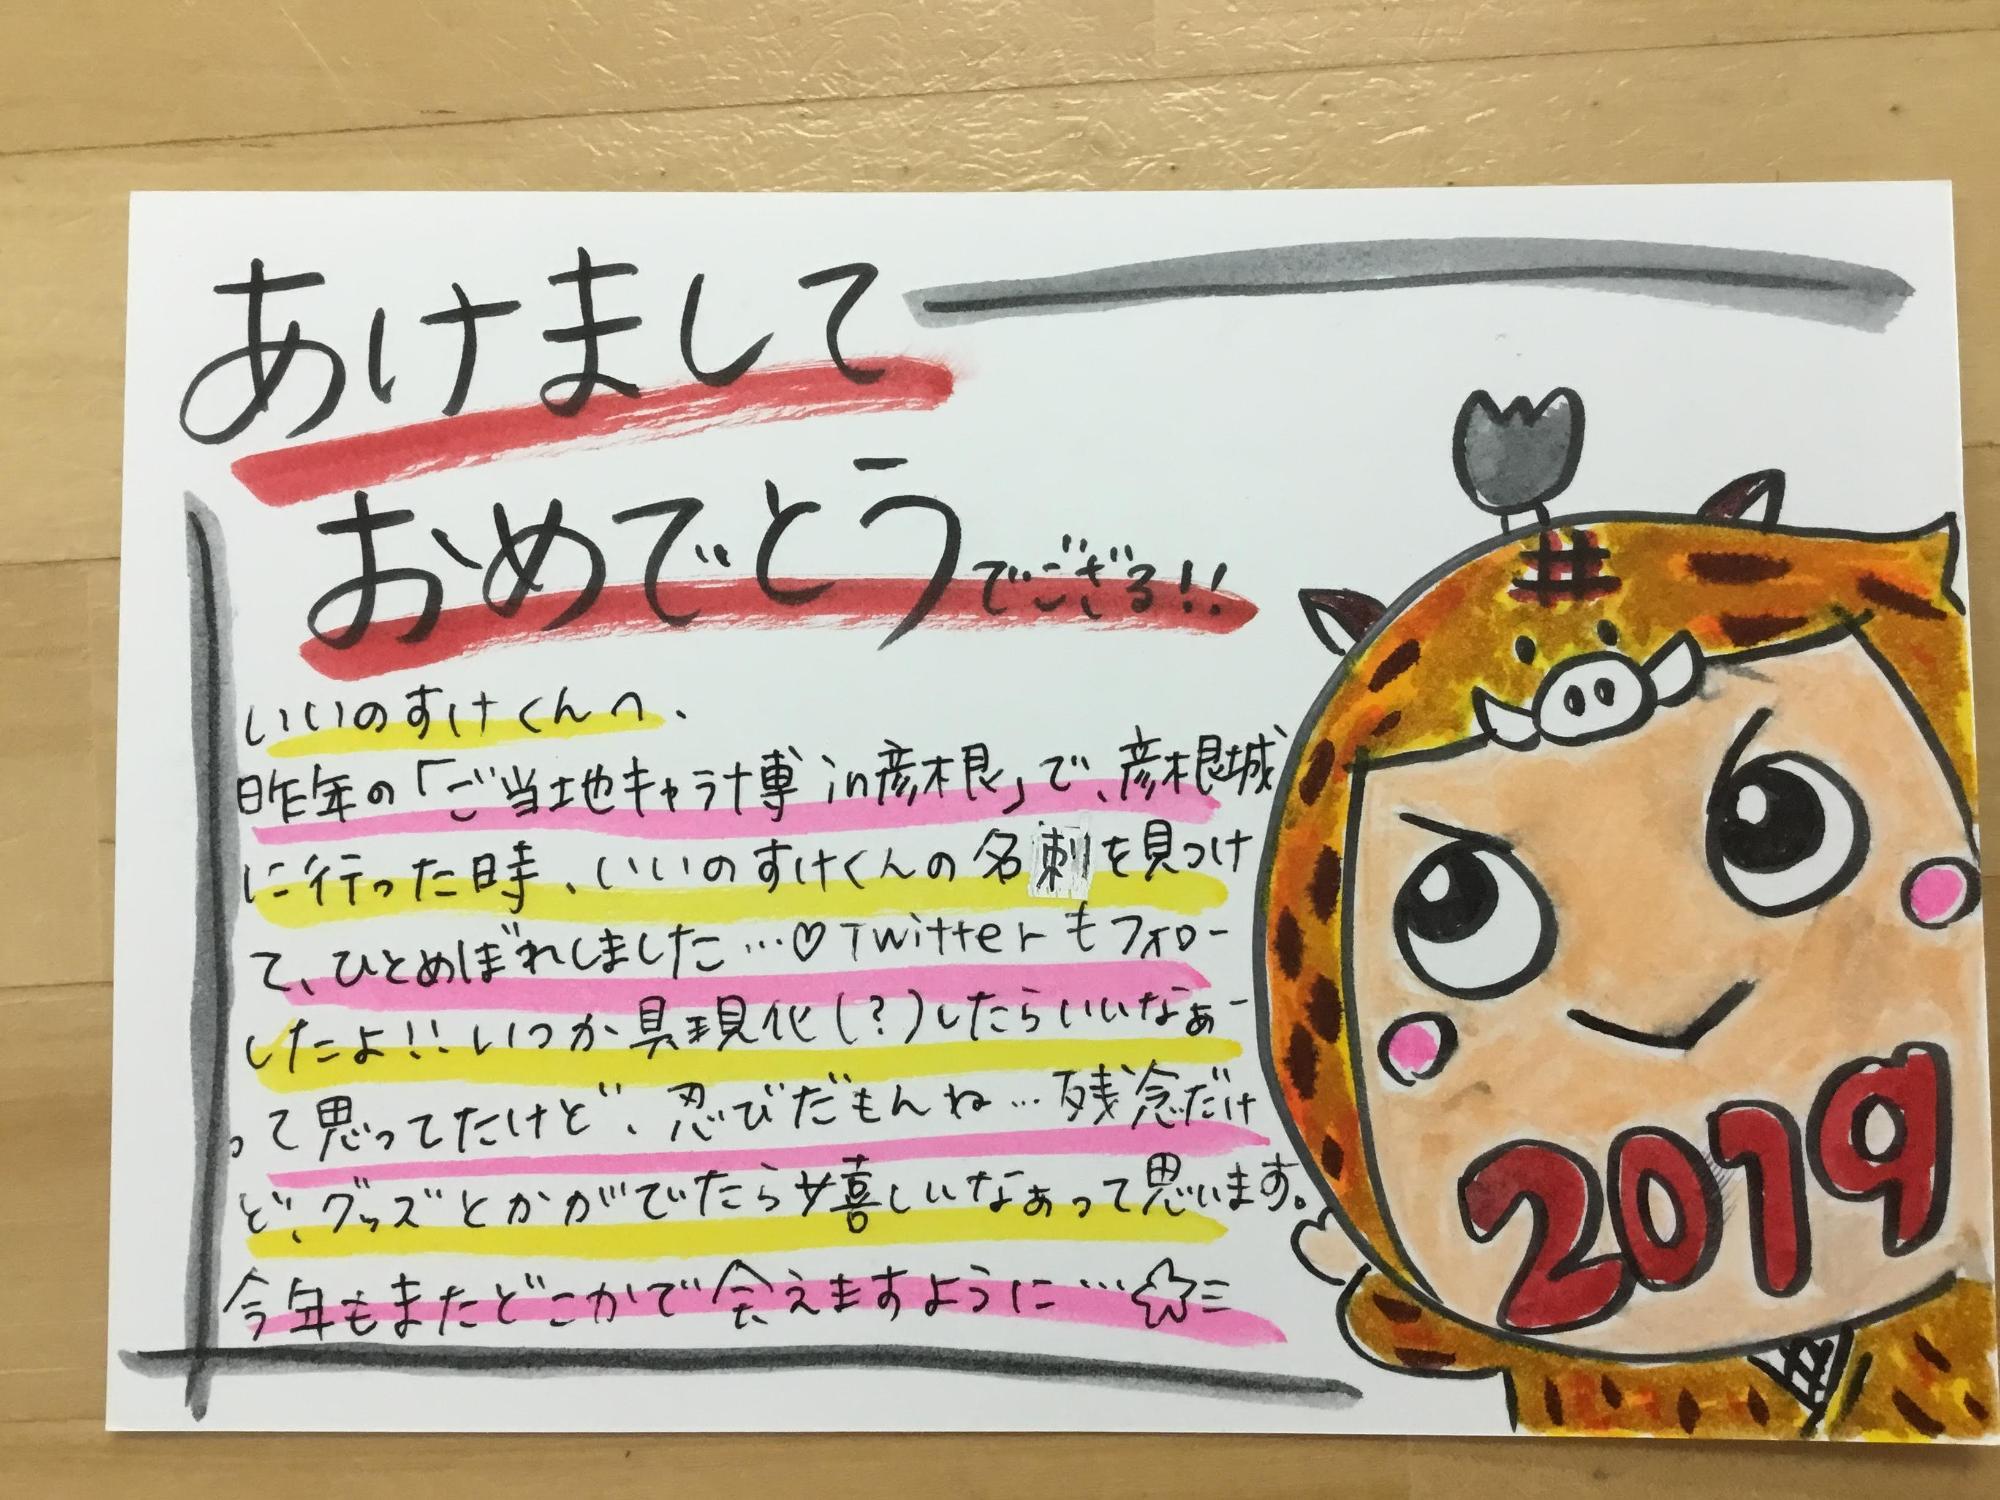 あけまして
おめでとうでござる!!
いいのすけくんへ、
昨年の「ご当地キャラ博in彦根」で、彦根城
に行った時、いいのすけくんの名刺を見つけ
て、ひとめぼれしました…♡Twitterもフォロー
したよ!!いつか具現化(?)したらいいなぁー
って思ってたけど、忍びだもんね…残念だけ
ど、グッズとかがでたら嬉しいなぁって思います。
今年もまたどこかで会えますように…☆ミ
井
2019